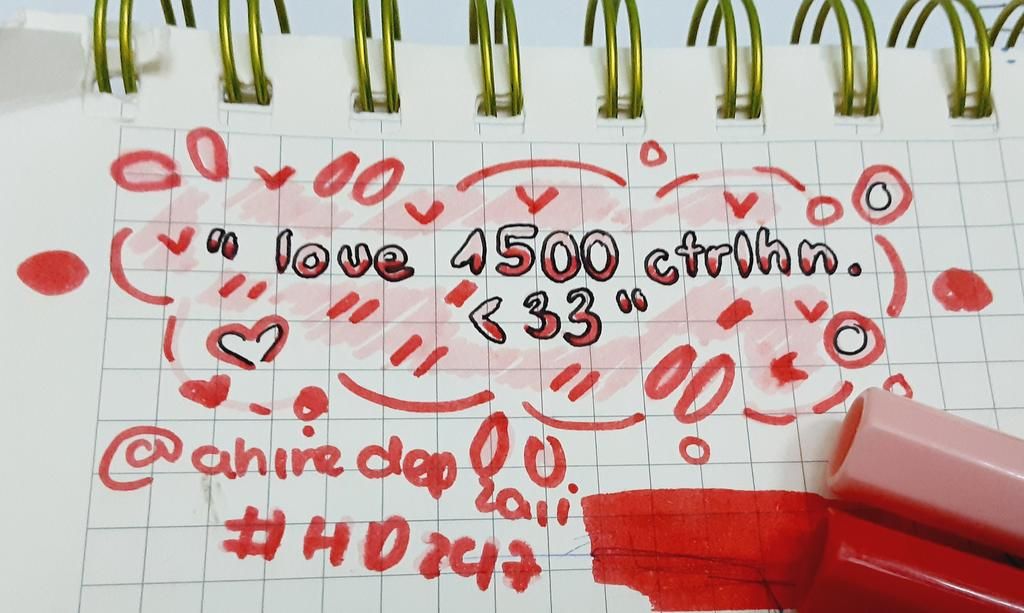 " love 1500 ctrlhn.
<33 "
@ahiredep
2aii
#HD247